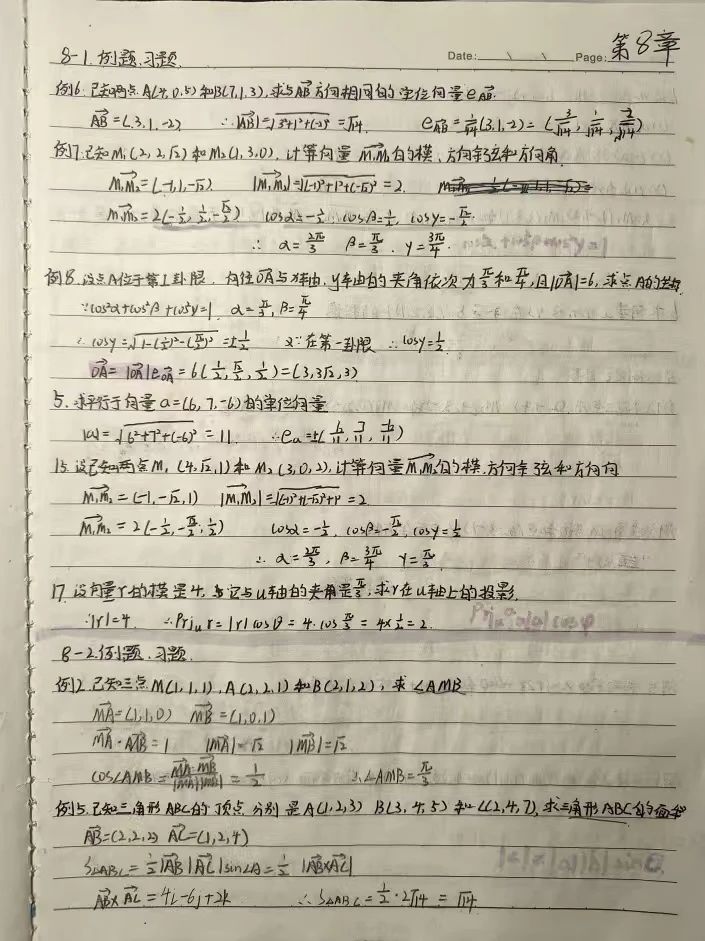 第8章
8-1.例题、习题.
Date: \ \ Page:
例6.已知两点A(4,0,5)和B(7,1,3),求与AB方向相同的单位向量eAB.
AB=(3,1,-2) ∴|AB|=√3²+1²+(-2)²=√14. eAB=1/√14(3,1,-2)=(3/√14,1/√14,-2/√14)
例7.已知M₁(2,2,√2)和M₂(1,3,0),计算向量M₁M₂的模、方向余弦和方向角.
M₁M₂=(-1,1,-√2) |M₁M₂|=√(-1)²+1²+(-√2)²=2.
M₁M₂=2(-1/2,1/2,-√2/2) cosα=-1/2,cosβ=1/2,cosγ=-√2/2.
∴α=2π/3 β=π/3.γ=3π/4.
例8.设点A位于第Ⅰ卦限,向径OA与x轴,y轴的夹角依次为π/3和π/4,且|OA|=6,求点A的坐标
∵cos²α+cos²β+cos²γ=1 α=π/3,β=π/4
∴cosγ=√1-(1/2)²-(√2/2)²=±1/2 又∵在第一卦限 ∴cosγ=1/2
OA=|OA|eOA=6(1/2,√2/2,1/2)=(3,3√2,3)
5.求平行于向量a=(6,7,-6)的单位向量
|a|=√6²+7²+(-6)²=11. ∴ea=±(6/11,7/11,-6/11)
15.设已知两点M₁(4,√2,1)和M₂(3,0,2),计算向量M₁M₂的模、方向余弦和方向角
M₁M₂=(-1,-√2,1) |M₁M₂|=√(-1)²+(-√2)²+1²=2
M₁M₂=2(-1/2,-√2/2,1/2) cosα=-1/2,cosβ=-√2/2,cosγ=1/2
∴α=2π/3,β=3π/4 γ=π/3.
17.设向量r的模是4,它与u轴的夹角是π/3,求r在u轴上的投影.
∵|r|=4. ∴Prjᵤr=|r|cosθ=4·cosπ/3=4×1/2=2. Prjᵤa=|a|cosφ
8-2.例题、习题.
例2.已知三点M(1,1,1),A(2,2,1)和B(2,1,2),求∠AMB
MA=(1,1,0) MB=(1,0,1)
MA·MB=1 |MA|=√2 |MB|=√2
cos∠AMB=MA·MB/|MA||MB|=1/2 ∴∠AMB=π/3
例5.已知三角形ABC的顶点分别是A(1,2,3) B(3,4,5)和C(2,4,7),求三角形ABC的面积
AB=(2,2,2) AC=(1,2,4)
S△ABC=1/2|AB||AC|sin∠A=1/2 |AB×AC|
AB×AC=4i-6j+2k ∴S△ABC=1/2·2√14=√14